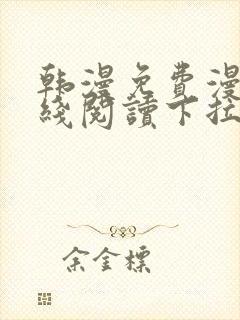 韩漫免费漫
线阅读下拉
余金标